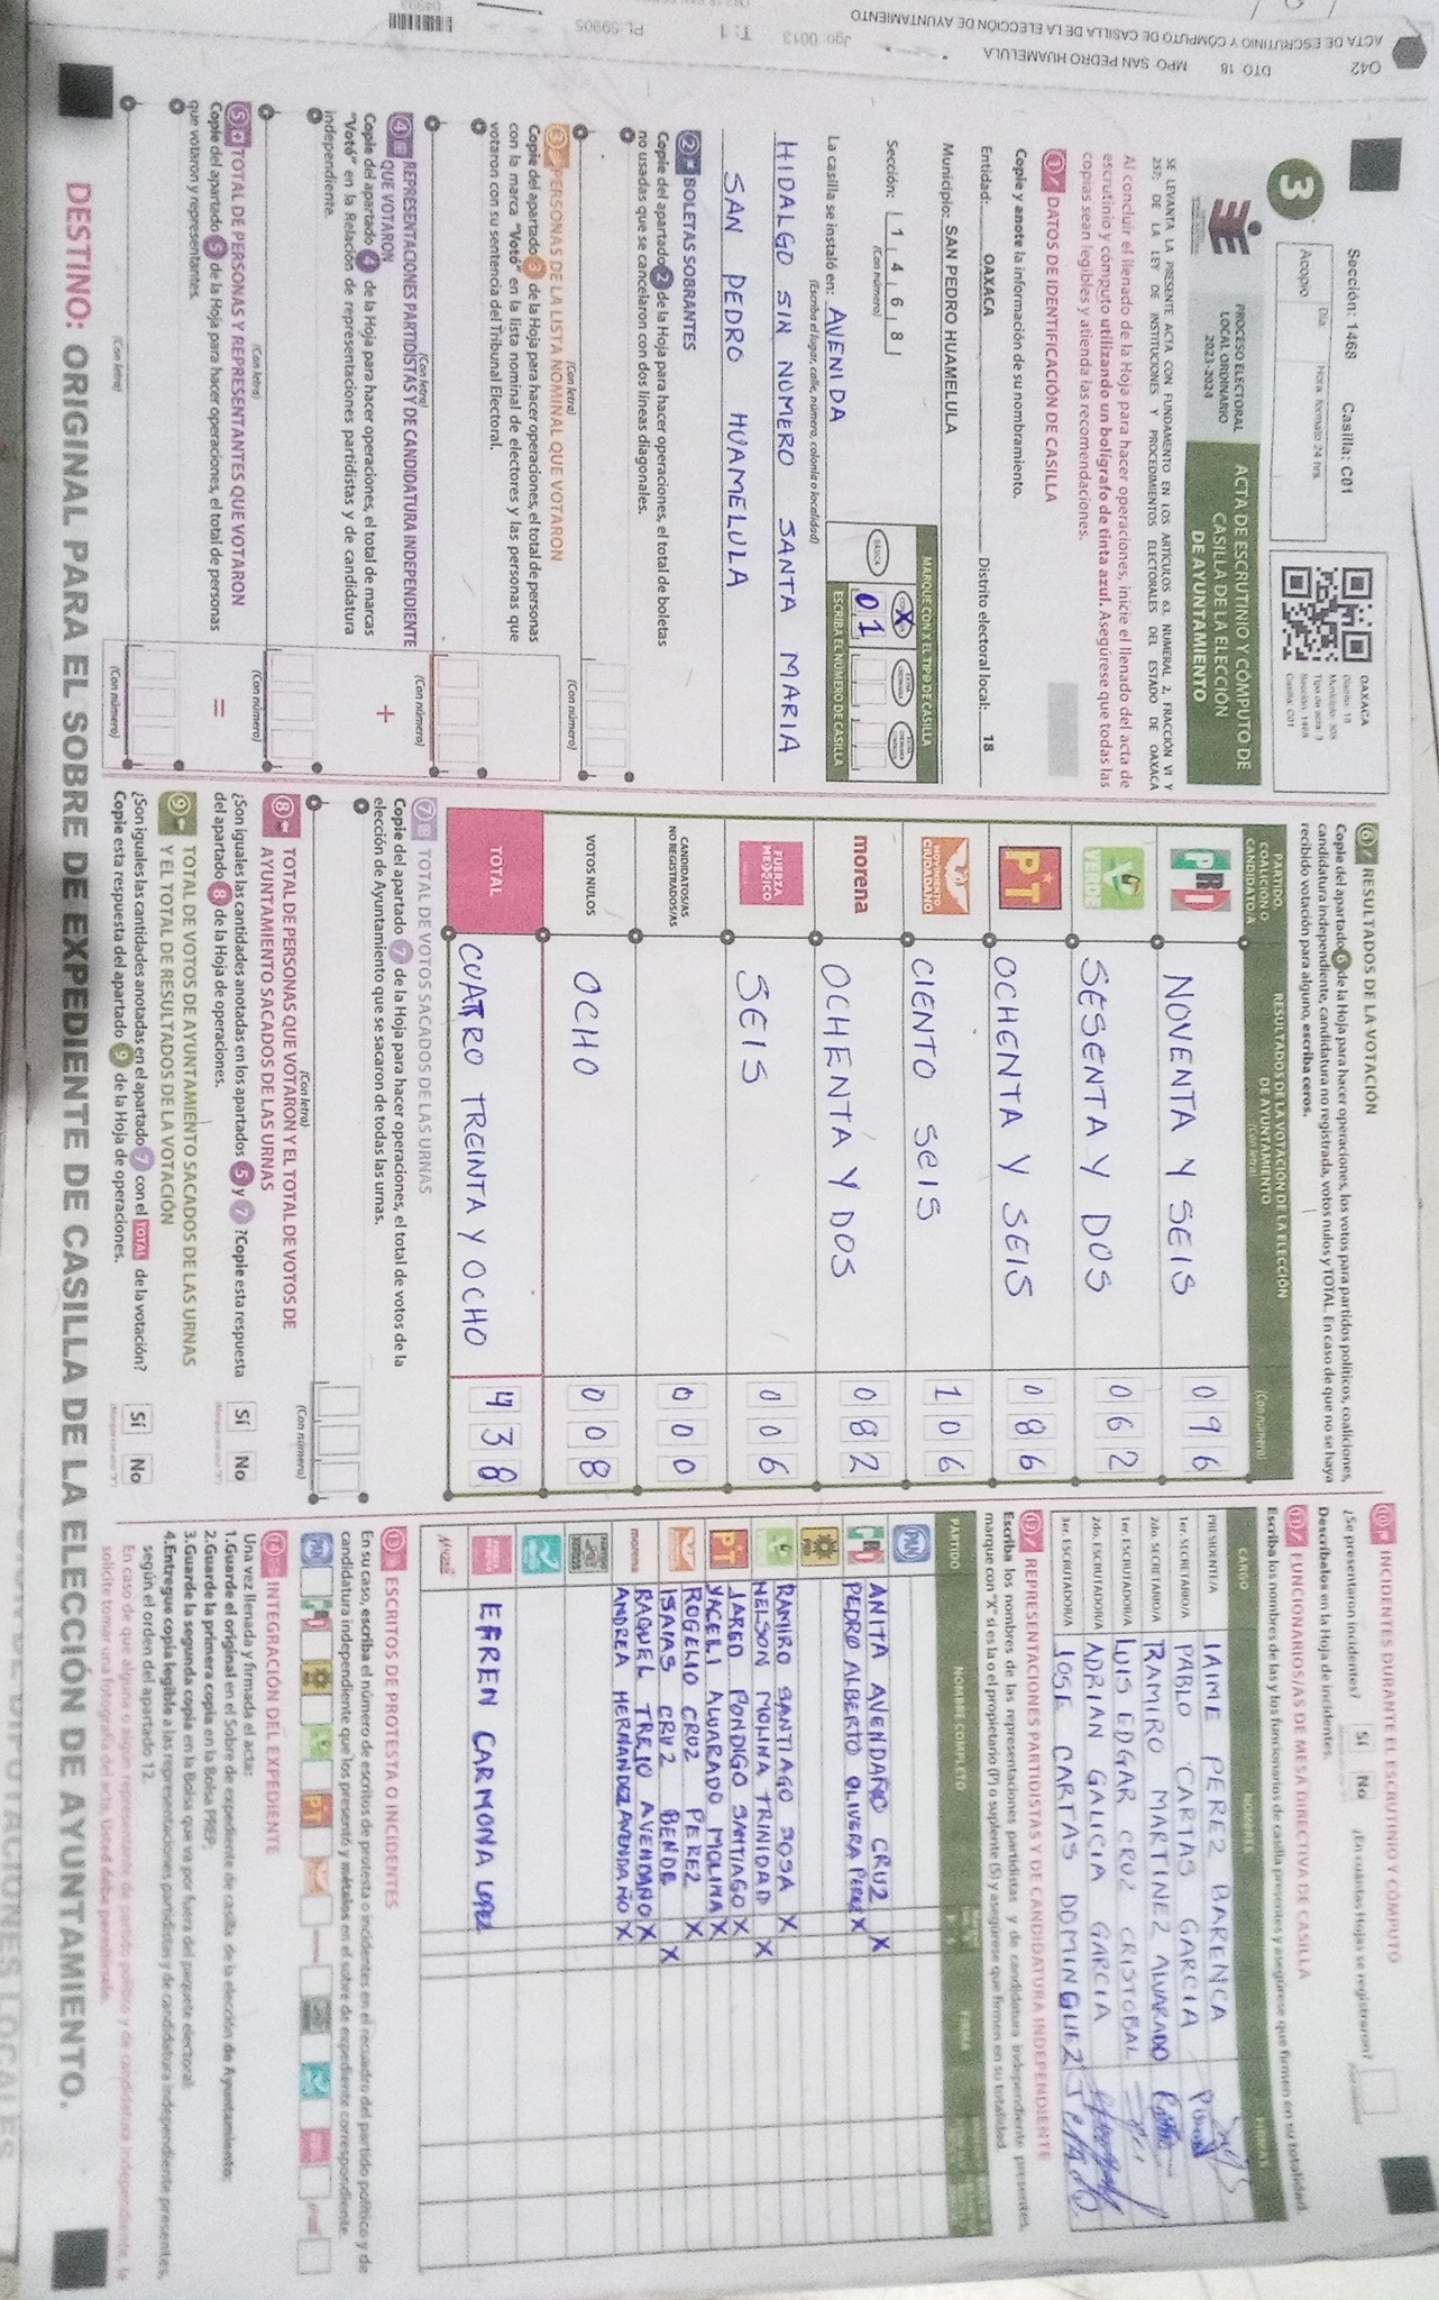 Q42 DTO. 18 MPO. SAN PEDRO HUAMELULA
ACTA DE ESCRUTINIO Y CÓMPUTO DE CASILLA DE LA ELECCIÓN DE AYUNTAMIENTO
Jgo. 0013 T: 1 PL-59905
3
Sección: 1468 Casilla: C01
Acopio
Día:
Hora: formato 24 hrs.
OAXACA
Distrito: 18
Municipio: 305
Tipo de acta: 3
Sección: 1468
Casilla: C01
PROCESO ELECTORAL
LOCAL ORDINARIO
2023-2024
ACTA DE ESCRUTINIO Y CÓMPUTO DE
CASILLA DE LA ELECCIÓN
DE AYUNTAMIENTO
SE LEVANTA LA PRESENTE ACTA CON FUNDAMENTO EN LOS ARTÍCULOS 63, NUMERAL 2, FRACCIÓN VI Y
257; DE LA LEY DE INSTITUCIONES Y PROCEDIMIENTOS ELECTORALES DEL ESTADO DE OAXACA
Al concluir el llenado de la Hoja para hacer operaciones, inicie el llenado del acta de
escrutinio y cómputo utilizando un bolígrafo de tinta azul. Asegúrese que todas las
copias sean legibles y atienda las recomendaciones.
1 DATOS DE IDENTIFICACIÓN DE CASILLA
Copie y anote la información de su nombramiento.
Entidad: OAXACA Distrito electoral local: 18
Municipio: SAN PEDRO HUAMELULA
Sección: 1 4 6 8
(Con número)
MARQUE CON X EL TIPO DE CASILLA
BÁSICA
X
0 1
ESCRIBA EL NÚMERO DE CASILLA
La casilla se instaló en: AVENIDA
(Escriba el lugar, calle, número, colonia o localidad)
HIDALGO SIN NÚMERO SANTA MARIA
SAN PEDRO HUAMELULA
2 BOLETAS SOBRANTES
Copie del apartado 2 de la Hoja para hacer operaciones, el total de boletas
no usadas que se cancelaron con dos líneas diagonales.
(Con letra) (Con número)
3 PERSONAS DE LA LISTA NOMINAL QUE VOTARON
Copie del apartado 3 de la Hoja para hacer operaciones, el total de personas
con la marca "Votó" en la lista nominal de electores y las personas que
votaron con su sentencia del Tribunal Electoral.
(Con letra) (Con número)
4 REPRESENTACIONES PARTIDISTAS Y DE CANDIDATURA INDEPENDIENTE
QUE VOTARON
Copie del apartado 4 de la Hoja para hacer operaciones, el total de marcas
"Votó" en la Relación de representaciones partidistas y de candidatura
independiente.
+
(Con letra) (Con número)
5 TOTAL DE PERSONAS Y REPRESENTANTES QUE VOTARON
Copie del apartado 5 de la Hoja para hacer operaciones, el total de personas
que votaron y representantes.
=
(Con letra) (Con número)
6 RESULTADOS DE LA VOTACIÓN
Copie del apartado 6 de la Hoja para hacer operaciones, los votos para partidos políticos, coaliciones,
candidatura independiente, candidatura no registrada, votos nulos y TOTAL. En caso de que no se haya
recibido votación para alguno, escriba ceros.
PARTIDO,
COALICIÓN O
CANDIDATO/A
RESULTADOS DE LA VOTACIÓN DE LA ELECCIÓN
DE AYUNTAMIENTO
(Con letra) (Con número)
PRI NOVENTA Y SEIS 0 9 6
VERDE SESENTA Y DOS 0 6 2
PT OCHENTA Y SEIS 0 8 6
MOVIMIENTO CIUDADANO CIENTO SEIS 1 0 6
morena OCHENTA Y DOS 0 8 2
FUERZA MÉXICO SEIS 0 0 6
CANDIDATOS/AS
NO REGISTRADOS/AS 0 0 0
VOTOS NULOS OCHO 0 0 8
TOTAL CUATRO TREINTA Y OCHO 4 3 8
7 TOTAL DE VOTOS SACADOS DE LAS URNAS
Copie del apartado 7 de la Hoja para hacer operaciones, el total de votos de la
elección de Ayuntamiento que se sacaron de todas las urnas.
(Con letra) (Con número)
8 TOTAL DE PERSONAS QUE VOTARON Y EL TOTAL DE VOTOS DE
AYUNTAMIENTO SACADOS DE LAS URNAS
¿Son iguales las cantidades anotadas en los apartados 5 y 7 ?Copie esta respuesta
del apartado 8 de la Hoja de operaciones.
Sí No
9 TOTAL DE VOTOS DE AYUNTAMIENTO SACADOS DE LAS URNAS
Y EL TOTAL DE RESULTADOS DE LA VOTACIÓN
¿Son iguales las cantidades anotadas en el apartado 7 con el TOTAL de la votación?
Copie esta respuesta del apartado 9 de la Hoja de operaciones.
Sí No
10 INCIDENTES DURANTE EL ESCRUTINIO Y CÓMPUTO
¿Se presentaron incidentes? Sí No ¿En cuántas Hojas se registraron?
Descríbalos en la Hoja de incidentes.
11 FUNCIONARIOS/AS DE MESA DIRECTIVA DE CASILLA
Escriba los nombres de las y los funcionarios de casilla presentes y asegúrese que firmen en su totalidad.
CARGO NOMBRES FIRMAS
PRESIDENTE/A JAIME PEREZ BARENCA
1er. SECRETARIO/A PABLO CARTAS GARCIA
2do. SECRETARIO/A RAMIRO MARTINEZ ALVARADO
1er. ESCRUTADOR/A LUIS EDGAR CRUZ CRISTOBAL
2do. ESCRUTADOR/A ADRIAN GALICIA GARCIA
3er. ESCRUTADOR/A JOSE CARTAS DOMINGUEZ
12 REPRESENTACIONES PARTIDISTAS Y DE CANDIDATURA INDEPENDIENTE
Escriba los nombres de las representaciones partidistas y de candidatura independiente presentes,
marque con "X" si es la o el propietario (P) o suplente (S) y asegúrese que firmen en su totalidad.
PARTIDO NOMBRE COMPLETO FIRMA
PAN
PRI ANITA AVENDAÑO CRUZ X
PEDRO ALBERTO OLIVERA PEREZ X
RAMIRO SANTIAGO SOSA X
NELSON MOLINA TRINIDAD X
PT JARED PONDIGO SANTIAGO X
YACELI ALVARADO MOLINA X
ROGELIO CRUZ PEREZ X
ISAIAS CRUZ BENDE X
morena RAQUEL TREJO AVENDAÑO X
ANDREA HERNANDEZ AVENDAÑO X
EFREN CARMONA LOPEZ
13 ESCRITOS DE PROTESTA O INCIDENTES
En su caso, escriba el número de escritos de protesta o incidentes en el recuadro del partido político y de
candidatura independiente que los presentó y métalos en el sobre de expediente correspondiente.
PAN
PRI
PT
14 INTEGRACIÓN DEL EXPEDIENTE
Una vez llenada y firmada el acta:
1.Guarde el original en el Sobre de expediente de casilla de la elección de Ayuntamiento;
2.Guarde la primera copia en la Bolsa PREP;
3.Guarde la segunda copia en la Bolsa que va por fuera del paquete electoral
4.Entregue copia legible a las representaciones partidistas y de candidatura independiente presentes,
según el orden del apartado 12.
En caso de que alguna o algún representante de partido político y de candidatura independiente, le
solicite tomar una fotografía del acta, Usted deberá permitírselo.
DESTINO: ORIGINAL PARA EL SOBRE DE EXPEDIENTE DE CASILLA DE LA ELECCIÓN DE AYUNTAMIENTO.